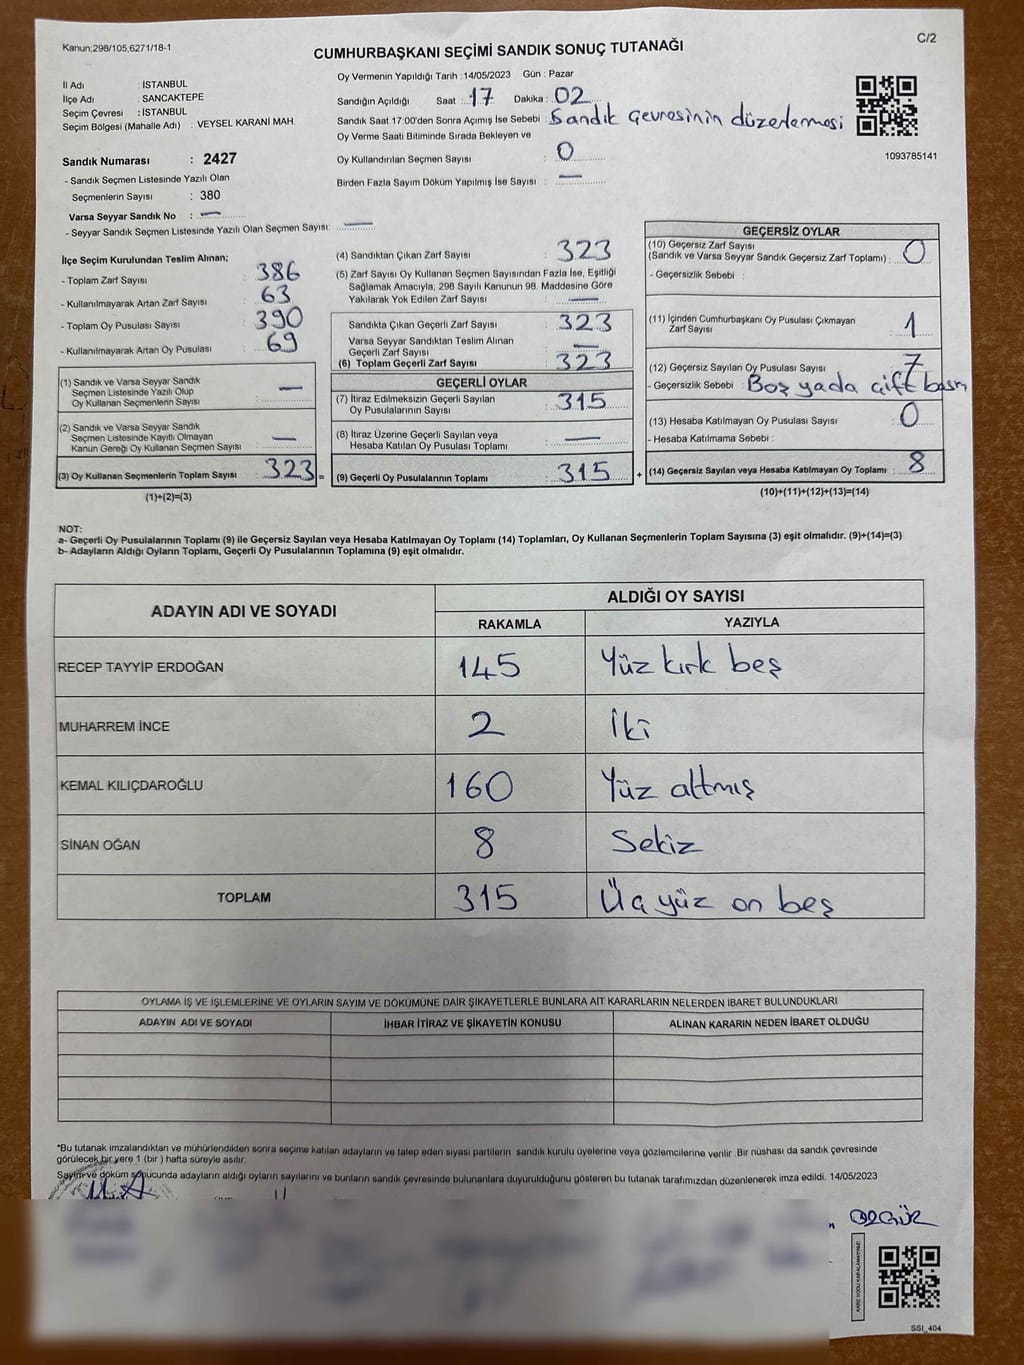 Kanun;298/105,6271/18-1
C/2
CUMHURBAŞKANI SEÇİMİ SANDIK SONUÇ TUTANAĞI
İl Adı : İSTANBUL
İlçe Adı : SANCAKTEPE
Seçim Çevresi : İSTANBUL
Seçim Bölgesi (Mahalle Adı) : VEYSEL KARANİ MAH.
Sandık Numarası : 2427
- Sandık Seçmen Listesinde Yazılı Olan
Seçmenlerin Sayısı : 380
Varsa Seyyar Sandık No : —
- Seyyar Sandık Seçmen Listesinde Yazılı Olan Seçmen Sayısı: —
Oy Vermenin Yapıldığı Tarih :14/05/2023 Gün : Pazar
Sandığın Açıldığı Saat : 17 Dakika : 02
Sandık Saat 17:00'den Sonra Açımış İse Sebebi : Sandık çevresinin düzenlemesi
Oy Verme Saati Bitiminde Sırada Bekleyen ve
Oy Kullandırılan Seçmen Sayısı : 0
Birden Fazla Sayım Döküm Yapılmış İse Sayısı : —
1093785141
İlçe Seçim Kurulundan Teslim Alınan;
- Toplam Zarf Sayısı : 386
- Kullanılmayarak Artan Zarf Sayısı : 63
- Toplam Oy Pusulası Sayısı : 390
- Kullanılmayarak Artan Oy Pusulası : 69
(1) Sandık ve Varsa Seyyar Sandık
Seçmen Listesinde Yazılı Olup
Oy Kullanan Seçmenlerin Sayısı : —
(2) Sandık ve Varsa Seyyar Sandık
Seçmen Listesinde Kayıtlı Olmayan
Kanun Gereği Oy Kullanan Seçmen Sayısı : —
(3) Oy Kullanan Seçmenlerin Toplam Sayısı : 323 =
(1)+(2)=(3)
(4) Sandıktan Çıkan Zarf Sayısı : 323
(5) Zarf Sayısı Oy Kullanan Seçmen Sayısından Fazla İse, Eşitliği
Sağlamak Amacıyla, 298 Sayılı Kanunun 98. Maddesine Göre
Yakılarak Yok Edilen Zarf Sayısı : —
Sandıkta Çıkan Geçerli Zarf Sayısı : 323
Varsa Seyyar Sandıktan Teslim Alınan
Geçerli Zarf Sayısı : —
(6) Toplam Geçerli Zarf Sayısı : 323
GEÇERLİ OYLAR
(7) İtiraz Edilmeksizin Geçerli Sayılan
Oy Pusulalarının Sayısı : 315
(8) İtiraz Üzerine Geçerli Sayılan veya
Hesaba Katılan Oy Pusulası Toplamı : —
(9) Geçerli Oy Pusulalarının Toplamı : 315 +
GEÇERSİZ OYLAR
(10) Geçersiz Zarf Sayısı
(Sandık ve Varsa Seyyar Sandık Geçersiz Zarf Toplamı) : 0
- Geçersizlik Sebebi :
(11) İçinden Cumhurbaşkanı Oy Pusulası Çıkmayan
Zarf Sayısı : 1
(12) Geçersiz Sayılan Oy Pusulası Sayısı : 7
- Geçersizlik Sebebi : Boş yada çift basım
(13) Hesaba Katılmayan Oy Pusulası Sayısı : 0
- Hesaba Katılmama Sebebi :
(14) Geçersiz Sayılan veya Hesaba Katılmayan Oy Toplamı : 8
(10)+(11)+(12)+(13)=(14)
NOT:
a- Geçerli Oy Pusulalarının Toplamı (9) ile Geçersiz Sayılan veya Hesaba Katılmayan Oy Toplamı (14) Toplamları, Oy Kullanan Seçmenlerin Toplam Sayısına (3) eşit olmalıdır. (9)+(14)=(3)
b- Adayların Aldığı Oyların Toplamı, Geçerli Oy Pusulalarının Toplamına (9) eşit olmalıdır.
ADAYIN ADI VE SOYADI ALDIĞI OY SAYISI
RAKAMLA YAZIYLA
RECEP TAYYİP ERDOĞAN 145 Yüz kırk beş
MUHARREM İNCE 2 İki
KEMAL KILIÇDAROĞLU 160 Yüz altmış
SİNAN OĞAN 8 Sekiz
TOPLAM 315 Üç yüz on beş
OYLAMA İŞ VE İŞLEMLERİNE VE OYLARIN SAYIM VE DÖKÜMÜNE DAİR ŞİKAYETLERLE BUNLARA AİT KARARLARIN NELERDEN İBARET BULUNDUKLARI
ADAYIN ADI VE SOYADI İHBAR İTİRAZ VE ŞİKAYETİN KONUSU ALINAN KARARIN NEDEN İBARET OLDUĞU
*Bu tutanak imzalandıktan ve mühürlendikten sonra seçime katılan adayların ve talep eden siyasi partilerin sandık kurulu üyelerine veya gözlemcilerine verilir .Bir nüshası da sandık çevresinde
görülecek bir yere 1 (bir ) hafta süreyle asılır.
Sayım ve döküm sonucunda adayların aldığı oyların sayılarını ve bunların sandık çevresinde bulunanlara duyurulduğunu gösteren bu tutanak tarafımızdan düzenlenerek imza edildi. 14/05/2023
KARE KODU KARALAMAYINIZ!
SSI_404